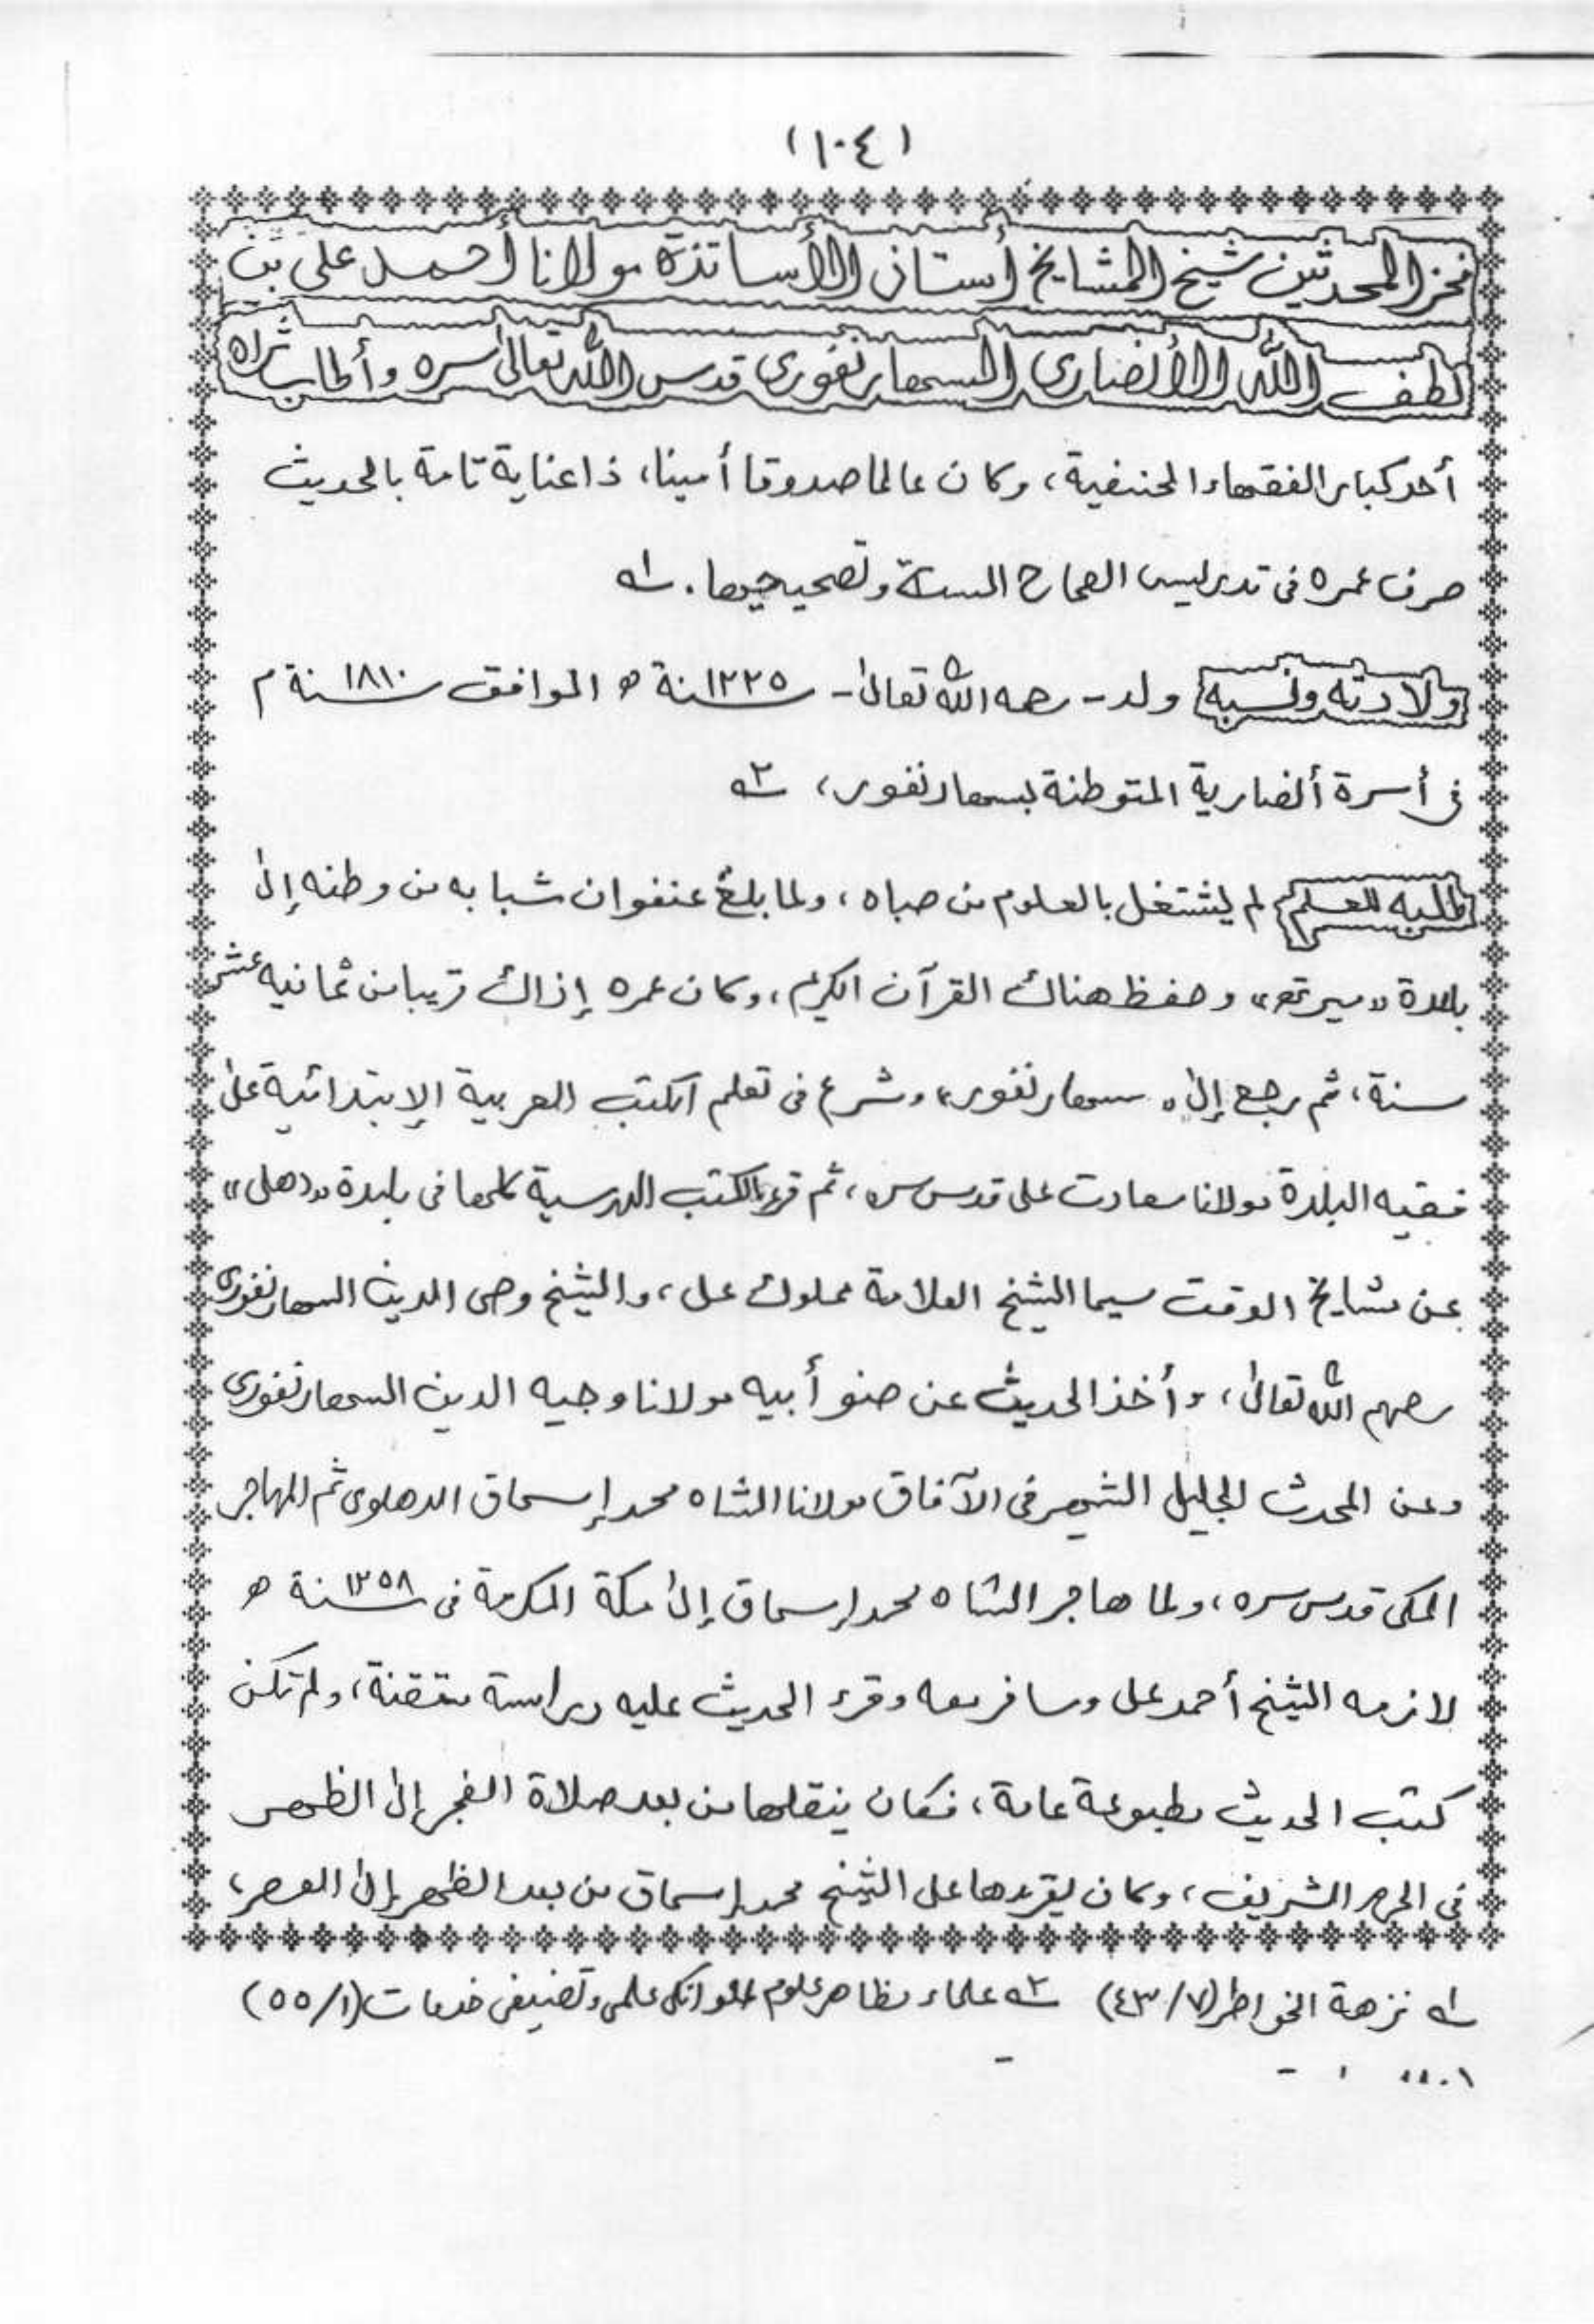 (١٠٤)
فخر المحدثين شيخ المشايخ أستاذ الأساتذة مولانا أحمد على بن
لطف الله الأنصارى السهارنفورى قدس الله تعالىٰ سره وأطاب ثراه
أحد كبار الفقهاء الحنفية، وكان عالما صدوقا أمينا، ذا عناية تامة بالحديث
صرف عمره فى تدريس الصحاح الستة وتصحيحها. ١ه
ولادته ونسبه ولد - رحمه الله تعالىٰ - سنة ١٢٢٥ ه الموافق سنة ١٨١٠ م
فى أسرة أنصارية المتوطنة بسهارنفور، ٢ه
طلبه للعلم لم يشتغل بالعلوم من صباه، ولما بلغ عنفوان شبابه من وطنه إلىٰ
بلدة «ميرته» وحفظ هناك القرآن الكريم، وكان عمره إذاك قريبا من ثمانيه عشر
سنة، ثم رجع إلىٰ «سهارنفور» وشرع فى تعلم الكتب العربية الإبتدائية علىٰ
فقيه البلدة مولانا سعادت على قدس سره، ثم قرء الكتب الدرسية كلها فى بلدة «دهلى»
عن مشايخ الوقت سيما الشيخ العلامة مملوك على، والشيخ وصى الدين السهارنفورى
رحمهم الله تعالىٰ، وأخذ الحديث عن صنو أبيه مولانا وجيه الدين السهارنفورى
وعن المحدث الجليل الشهير فى الآفاق مولانا الشاه محمد إسحاق الدهلوى ثم المهاجر
المكى قدس سره، ولما هاجر الشاه محمد إسحاق إلىٰ مكة المكرمة فى سنة ١٢٥٨ ه
لازمه الشيخ أحمد على وسافر معه وقرء الحديث عليه دراسة متقنة، ولم تكن
كتب الحديث مطبوعة عامة، فكان ينقلها من بعد صلاة الفجر إلىٰ الظهر
فى الحرم الشريف، وكان يقرءها على الشيخ محمد إسحاق من بعد الظهر إلىٰ العصر،
١ه نزهة الخواطر (٤٣/٧) ٢ه علماء مظاهر علوم انكى علمى وتصنيفى خدمات (٥٥/١)